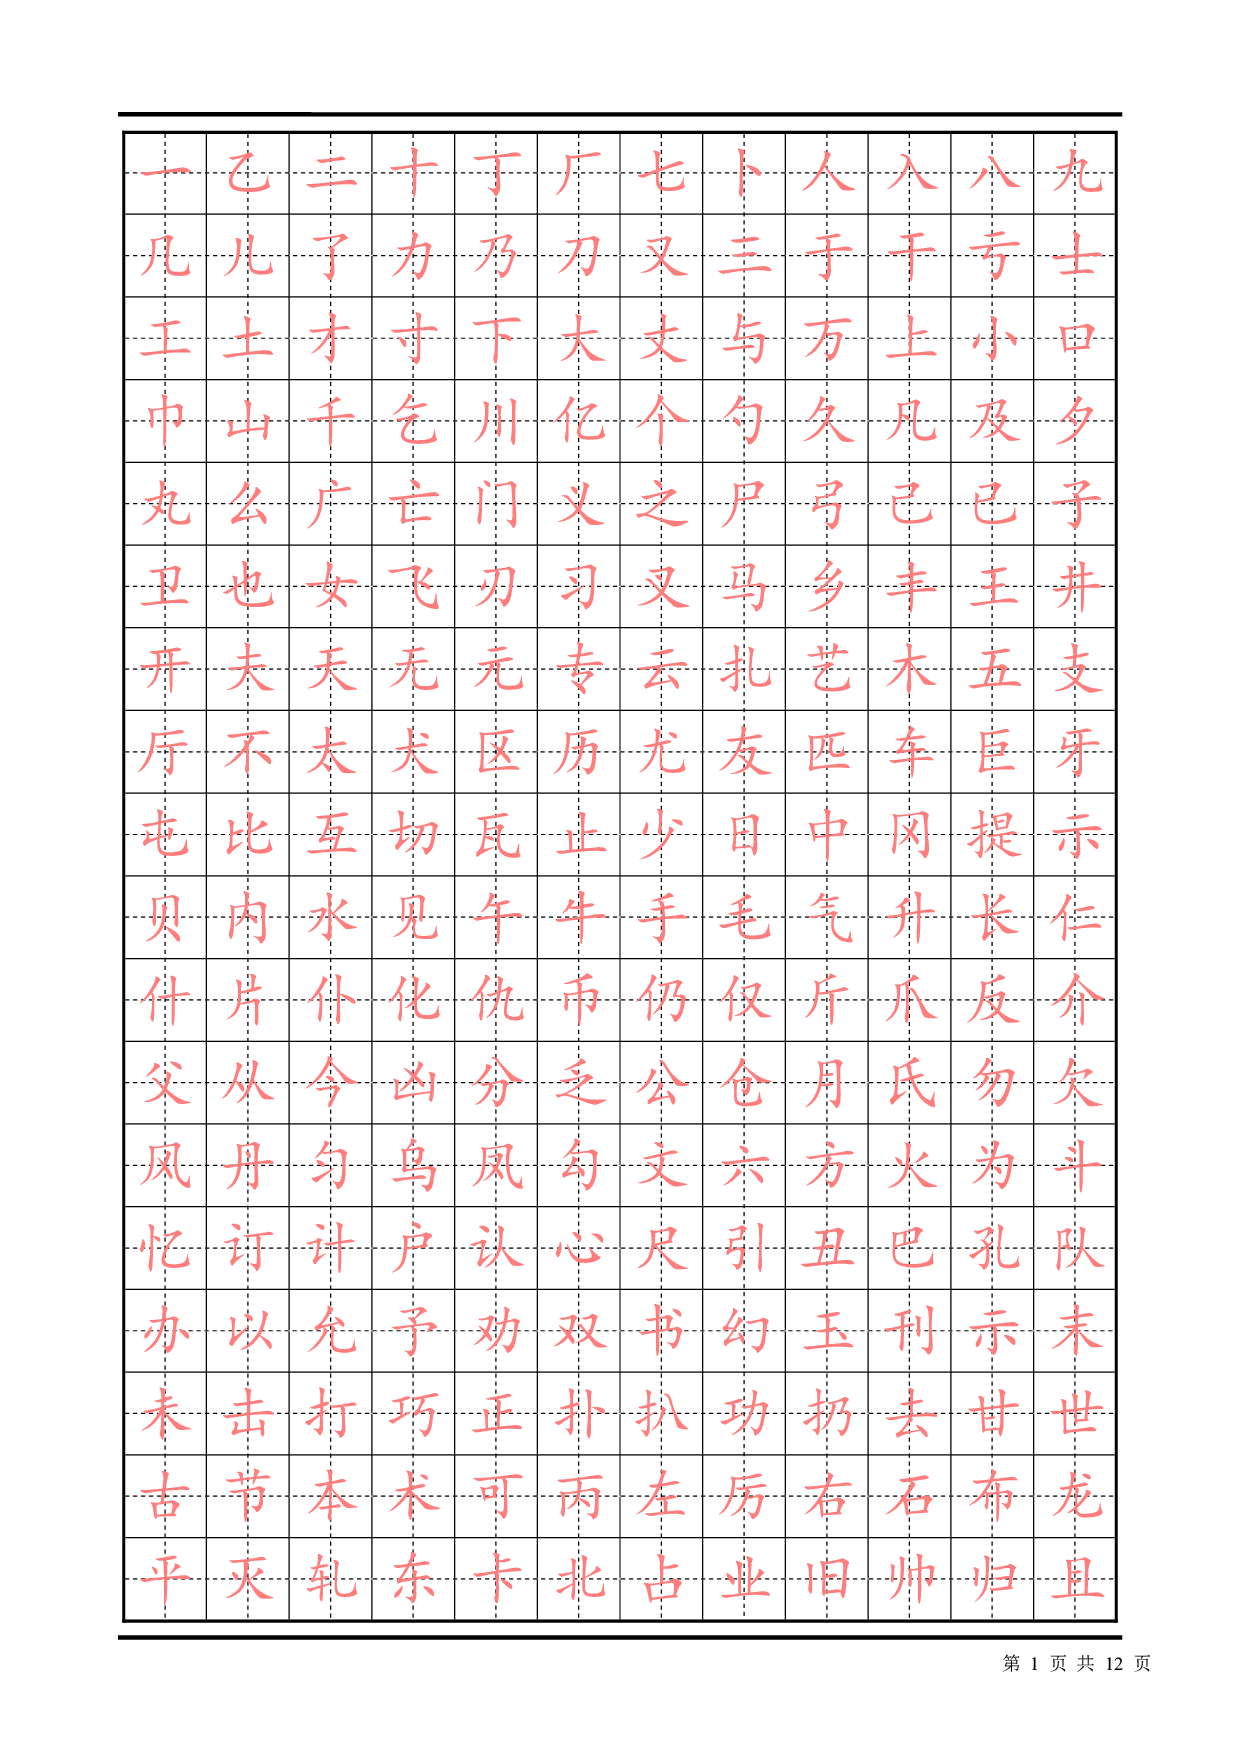 一乙二十丁厂七卜人入八九
几儿了力乃刀又三于干亏士
工土才寸下大丈与万上小口
巾山千乞川亿个勺久凡及夕
丸么广亡门义之尸弓己已子
卫也女飞刃习叉马乡丰王井
开夫天无元专云扎艺木五支
厅不太犬区历尤友匹车巨牙
屯比互切瓦止少日中冈提示
贝内水见午牛手毛气升长仁
什片仆化仇币仍仅斤爪反介
父从今凶分乏公仓月氏勿欠
风丹匀乌凤勾文六方火为斗
忆订计户认心尺引丑巴孔队
办以允予劝双书幻玉刊示末
未击打巧正扑扒功扔去甘世
古节本术可丙左厉右石布龙
平灭轧东卡北占业旧帅归且
第 1 页 共 12 页